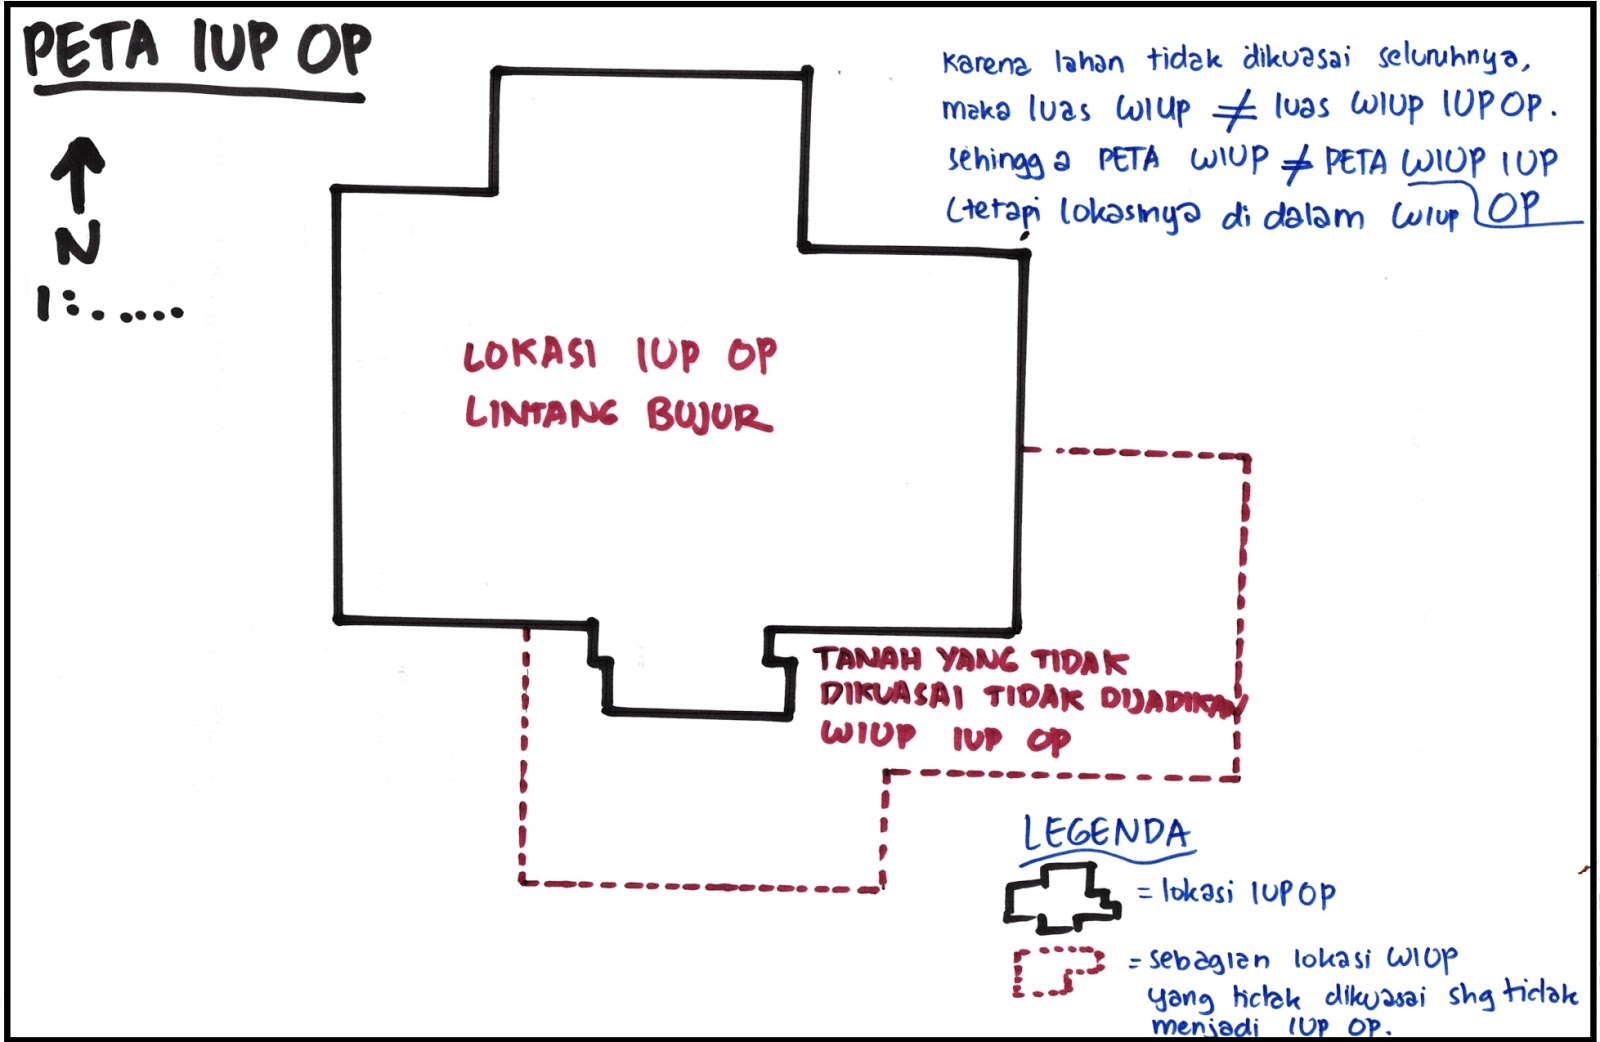 PETA IUP OP
N
1:......
Karena lahan tidak dikuasai seluruhnya,
maka luas WIUP ≠ luas WIUP IUP OP.
sehingga PETA WIUP ≠ PETA WIUP IUP
(tetapi lokasinya di dalam WIUP OP
LOKASI IUP OP
LINTANG BUJUR
TANAH YANG TIDAK
DIKUASAI TIDAK DIJADIKAN
WIUP IUP OP
LEGENDA
= lokasi IUP OP
= sebagian lokasi WIUP
yang tidak dikuasai shg tidak
menjadi IUP OP.